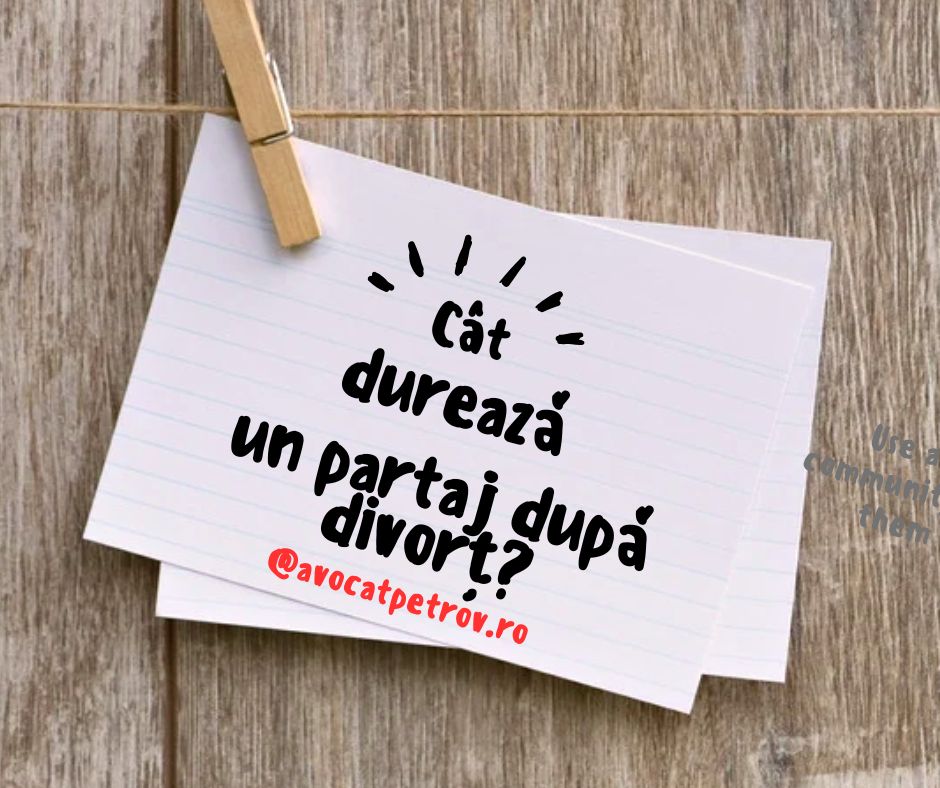 Cât
durează
un partaj după
divorț?
@avocatpetrov.ro
Use a
communit
them